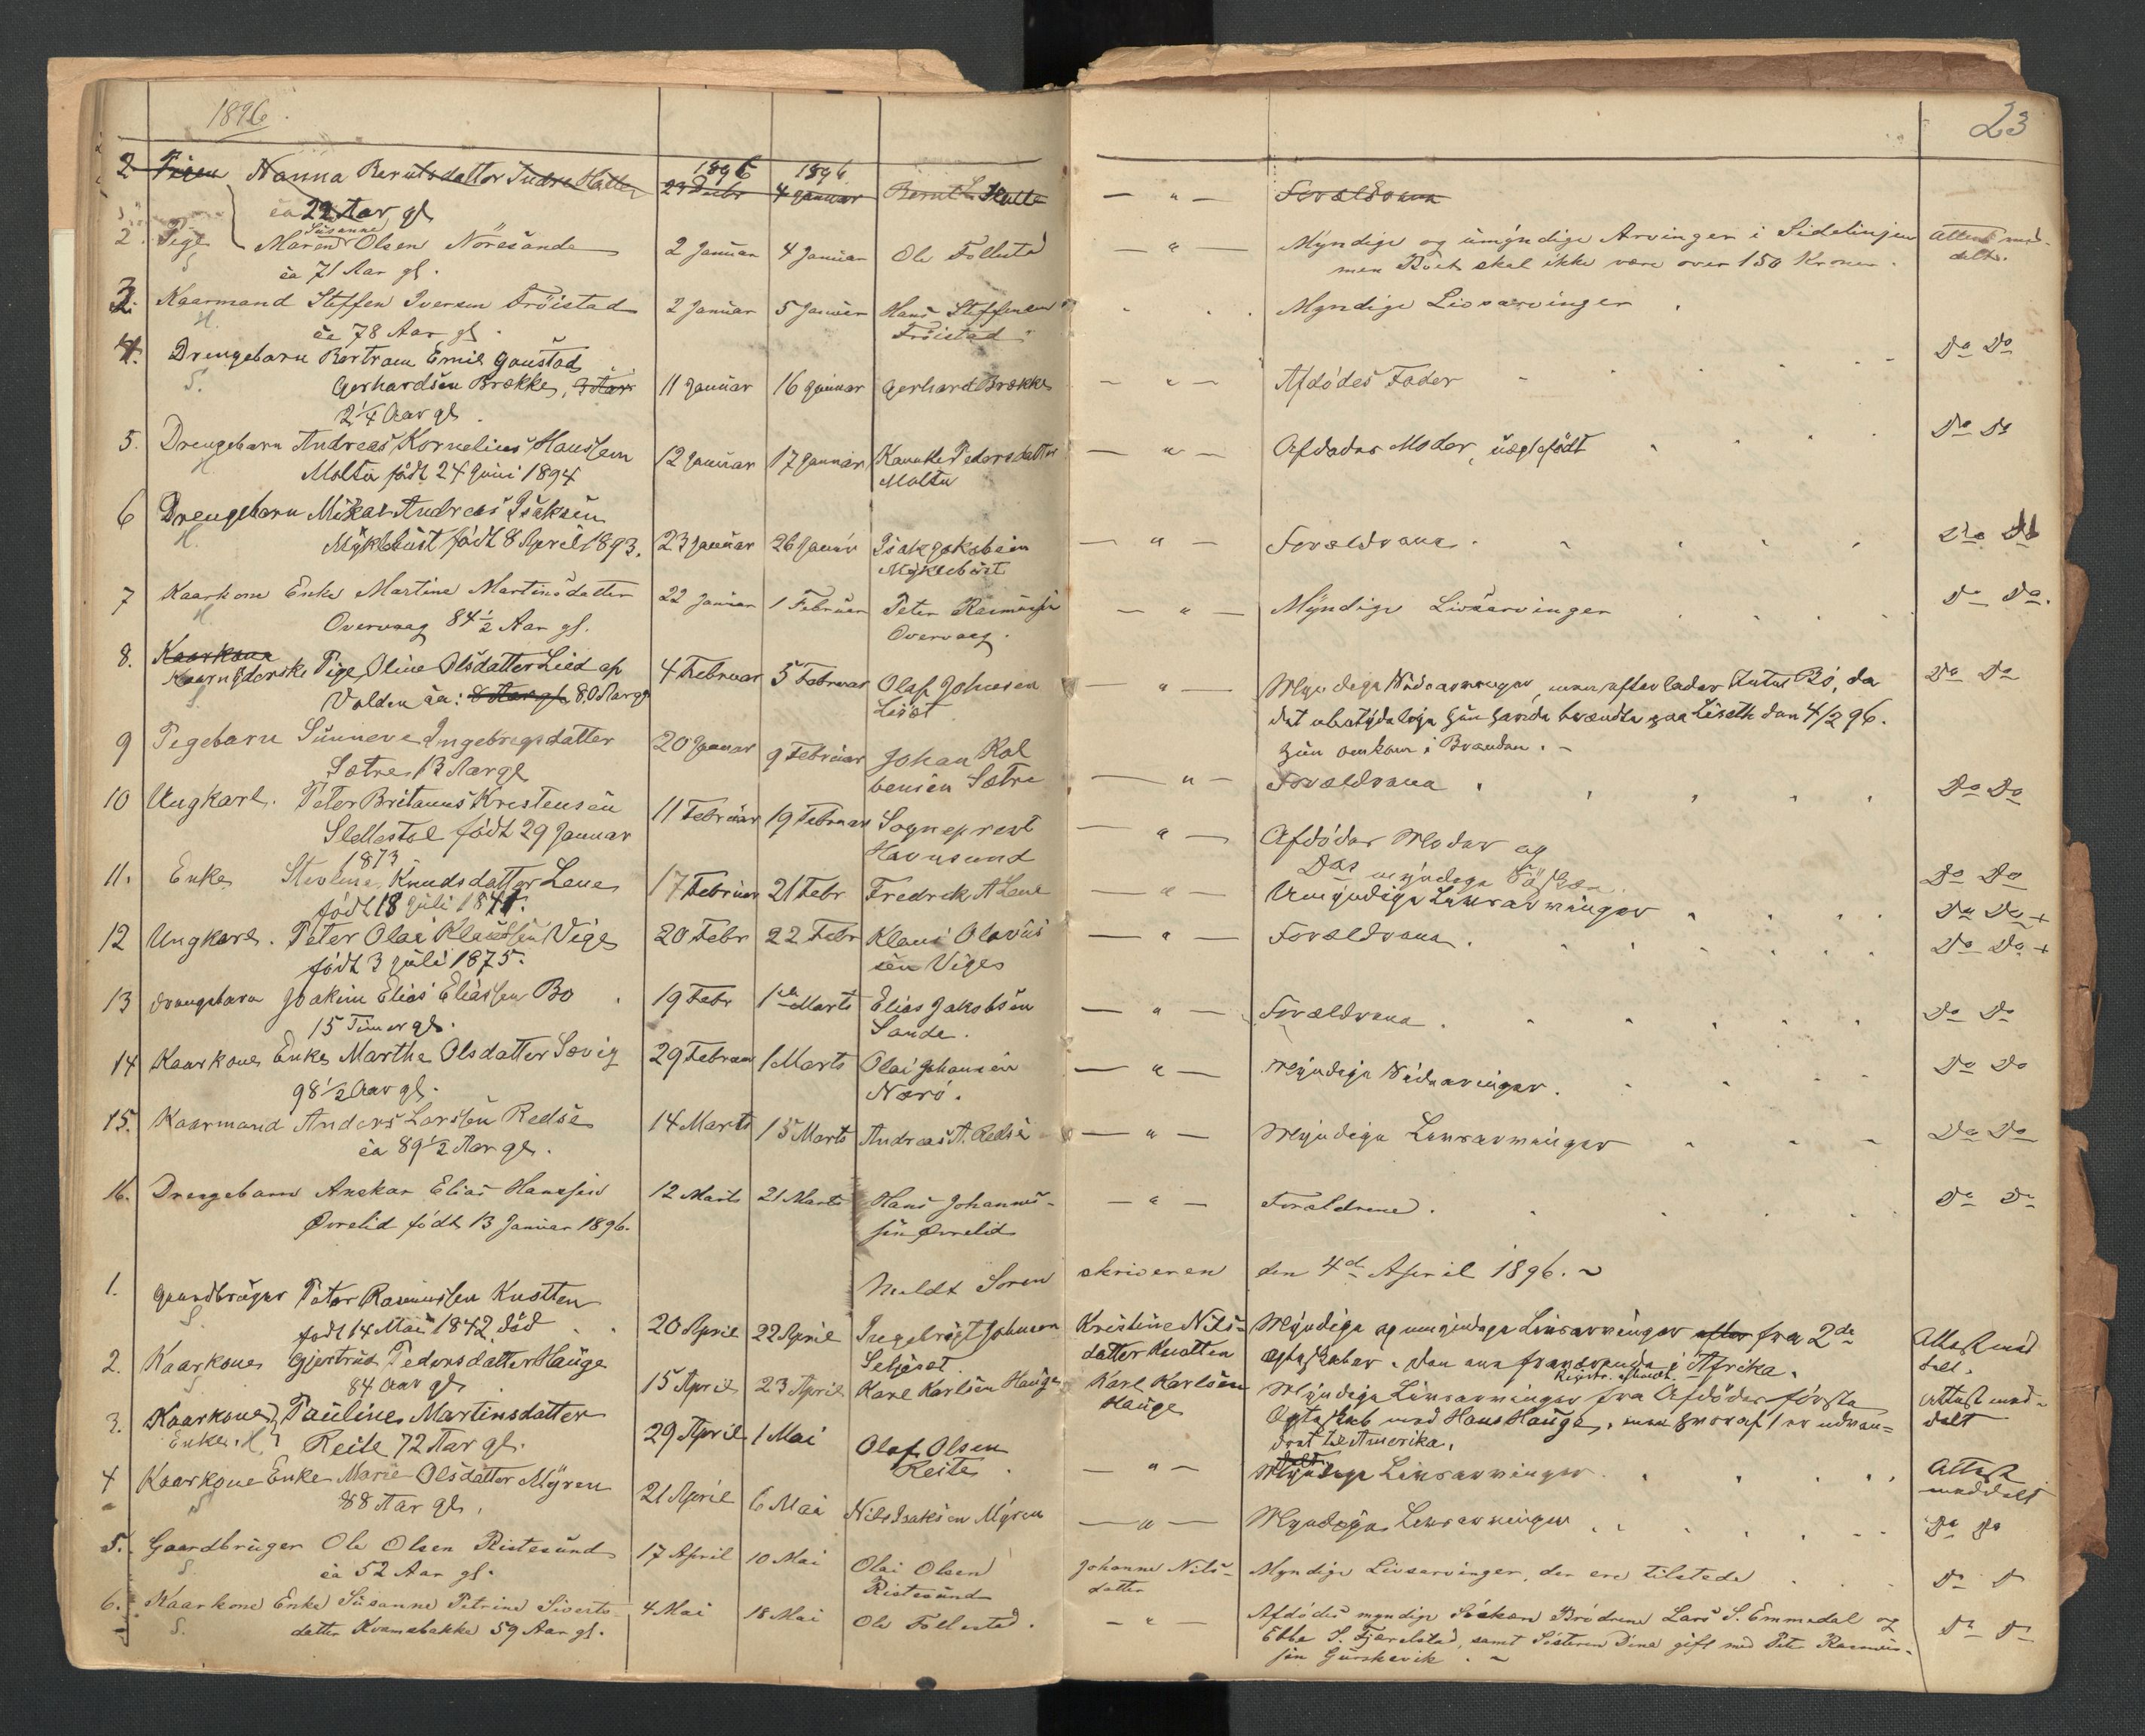 1896
23
2 Pigen Nanna Berntsdatter Indre Hatle 1896 29 Decbr 1896 4 Januar Bernt L Hatle — " — Forældrene
ca 22 Aar gl
2. Pige Maren Susanne Olsen Nöresande 2 Januar 4 Januar Ole Follestad — " — Myndige og umyndige Arvinger i Sidelinjen Attest med-
S ca 71 Aar gl. men Boet skal ikke være over 150 Kroner. delt.
3. Kaarmand Steffen Iversen Fröistad 2 Januar 5 Januar Hans Steffensen Myndige Livsarvinger
H. ca 78 Aar gl. Fröistad Do Do
4. Drengebarn Bertram Emil Gaustad
S. Gerhardsen Brække, 11 Januar 16 Januar Gerhard Brække — " — Afdödes Fader
2 1/4 Aar gl Do Do
5. Drengebarn Andreas Kornelius Hanssen 12 Januar 17 Januar Pedersdatter — " — Afdødes Moder, uægtefödt
H Moltu födt 24 Juni 1894 Moltu
6 Drengebarn Mikal Andreas Isaksen
H. Myklebust födt 8 April 1893. 23 Januar 26 Januar Isak Jakobsen — " — Forældrene. Do Do
Myklebust
7 Kaarkone Enke Martine Martinsdatter 22 Januar 1 Februar Peter Rasmussen — " — Myndige Livsarvinger Do Do.
H. Overvaag 84 1/2 Aar gl. Overvaag.
8. Kaarkone
Kaarnyderske Pige Oline Olsdatter Lied af 4 Februar 5 Februar Olaf Johnsen — " — Myndige Udearvinger, men efterlader Intet Bo, da Do Do
S Volden ca: 8 Aar gl 80 Aar gl Liset det ubetydelige hun havde brændte paa Liseth den 4/2 96.
hun omkom i Branden. —
9 Pigebarn Sunneve Ingebrigtsdatter 20 Januar 9 Februar Johan Kol
Sætre 13 Aar gl bensen Sætre — " — Forældrene Do Do
10 Ungkarl. Peter Britanus Kristensen 11 Februar 19 Februar Sogneprest — " — Afdödes Moder og
Slettestöl födt 29 Januar Havnsund Des myndige Södsken. Do Do
1873
11. Enke Stevline Knudsdatter Lene 17 Februar 21 Febr Fredrik A Lene — " — Umyndige Livsarvinger Do Do +
födt 18 Juli 1841.
12 Ungkarl. Peter Olai Klaussen Viges 20 Febr 22 Febr Klaus Olavus — " — Forældrene. Do Do +
födt 3 Juli 1875. sen Viges
13 Drengebarn Joakim Elias Eliassen Bo 19 Febr 1ste Marts Elias Jakobsen — " — Forældrene. Do Do
15 Timer gl. Sande.
14 Kaarkone Enke Marthe Olsdatter Sævig 29 Februar 1 Marts Olai Johansen — " — Myndige Udearvinger. Do Do
98 1/2 Aar gl. Nærö.
15. Kaarmand Anders Larssen Redse 14 Marts 15 Marts Andreas A. Redse — " — Myndige Livsarvinger Do Do
ca 89 1/2 Aar gl.
16. Drengebarn Anskar Elias Hanssen 12 Marts 21 Marts Hans Johannes- — " — Forældrene. Do Do
Øvrelid födt 13 Januar 1896. sen Øvrelid
Meldt Soren skriveren den 4de April 1896. ~
1. Gaardbruger Peter Rasmussen Knotten
S. födt 14 Mai 1842. död 20 April 22 April Ingebrigt Johnsen Kristine Nils- Myndige og umyndige Livsarvinger efter fra 2de Attest med
Seljeset datter Knotten ægteskaber. den ene fraværende i Afrika. delt.
2. Kaarkone Gjertrud Pedersdatter Hauge 15 April 23 April Karl Karlsen Hauge Karl Karlsen Myndige Livsarvinger fra Afdödes förste Attest med-
S 84 Aar gl Hauge Ægteskab med Hans Hauge, men hvoraf 1 er udvan- delt
dret til Amerika.
3. Kaarkone Enke. H. Pauline Martinsdatter 29 April 1 Mai Olaf Olsen — " — Myndige Livsarvinger. Attest
Reite 72 Aar gl. Reite. meddelt
4 Kaarkone Enke Marie Olsdatter Myren 21 April 6 Mai Nils Isaksen Myren — " — Myndige Livsarvinger Do Do
S 88 Aar gl.
5. Gaardbruger Ole Olsen Ristesund 17 April 10 Mai Olai Olsen Johanne Nils- Myndige Livsarvinger, der ere tilstede Do D
S. ca 52 Aar gl. Ristesund datter
6. Kaarkone Enke Susanne Petrine Siverts- 4 Mai 18 Mai Ole Follestad. — " — Afdödes myndige Söskon Brödrene Lars S. Emmedal og Do Do
S. datter Kvamsbakke 59 Aar gl. Ebbe S. Fjærelstad, samt Sösteren Dina gift med Peter Rasmus-
sen Gurskevik. ~